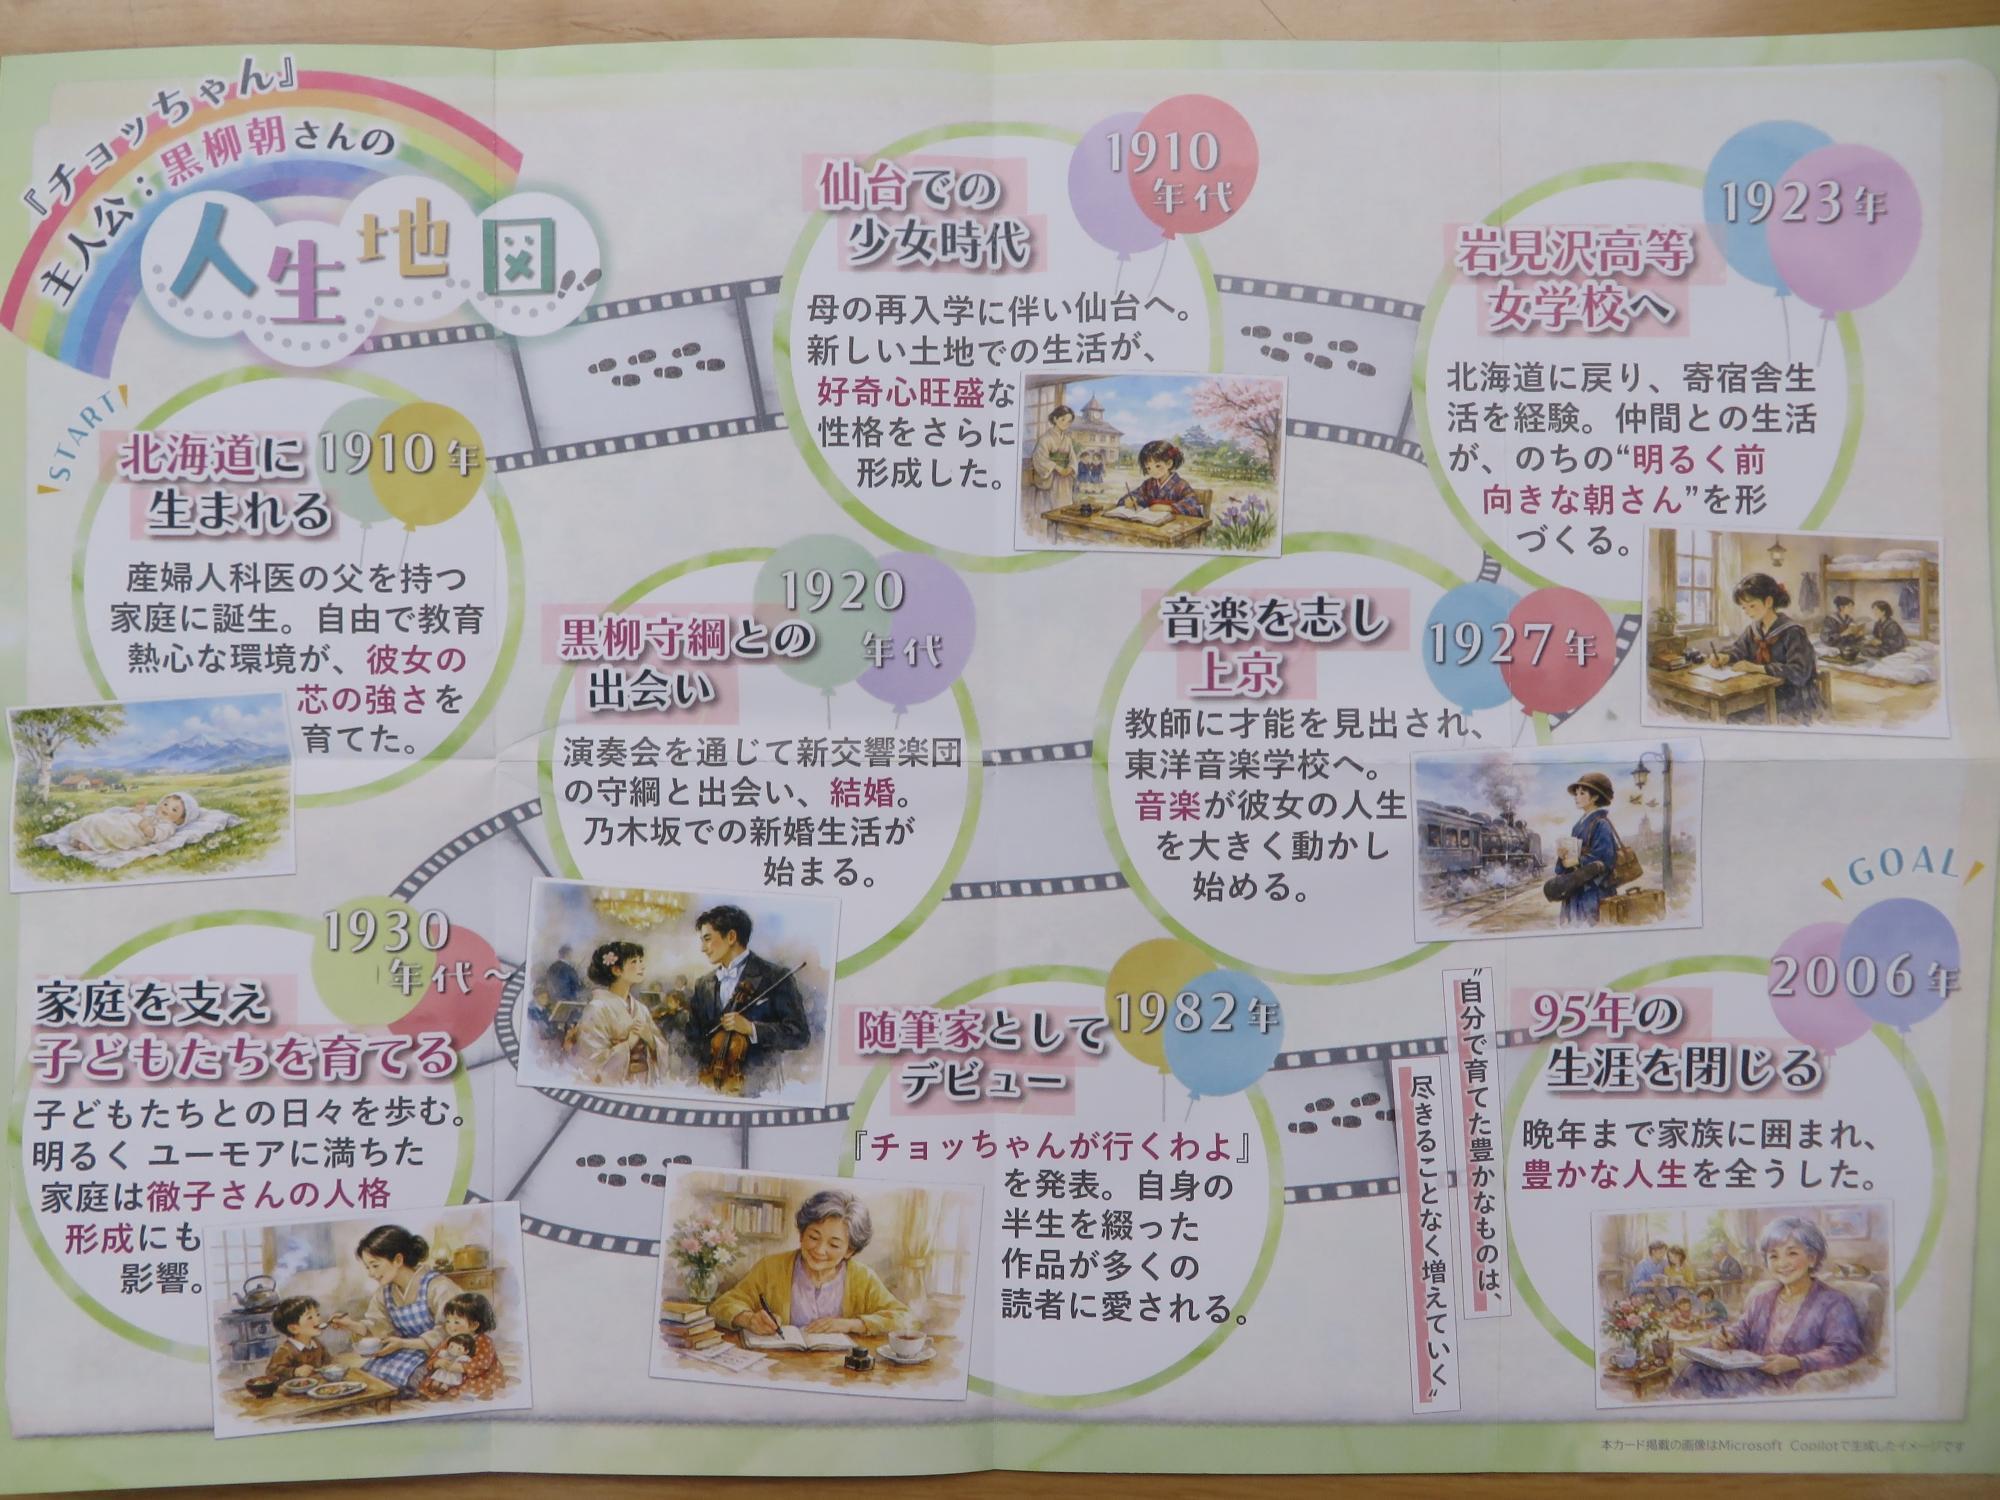 『チョッちゃん』
主人公：黒柳朝さんの
人生地図
START
北海道に
生まれる
1910年
産婦人科医の父を持つ
家庭に誕生。自由で教育
熱心な環境が、彼女の
芯の強さを
育てた。
仙台での
少女時代
1910
年代
母の再入学に伴い仙台へ。
新しい土地での生活が、
好奇心旺盛な
性格をさらに
形成した。
岩見沢高等
女学校へ
1923年
北海道に戻り、寄宿舎生
活を経験。仲間との生活
が、のちの“明るく前
向きな朝さん”を形
づくる。
音楽を志し
上京
1927年
教師に才能を見出され、
東洋音楽学校へ。
音楽が彼女の人生
を大きく動かし
始める。
黒柳守綱との
出会い
1920
年代
演奏会を通じて新交響楽団
の守綱と出会い、結婚。
乃木坂での新婚生活が
始まる。
家庭を支え
子どもたちを育てる
1930
年代～
子どもたちとの日々を歩む。
明るく ユーモアに満ちた
家庭は徹子さんの人格
形成にも
影響。
随筆家として
デビュー
1982年
『チョッちゃんが行くわよ』
を発表。自身の
半生を綴った
作品が多くの
読者に愛される。
“自分で育てた豊かなものは、
尽きることなく増えていく”
GOAL
95年の
生涯を閉じる
2006年
晩年まで家族に囲まれ、
豊かな人生を全うした。
本カード掲載の画像はMicrosoft Copilotで生成したイメージです